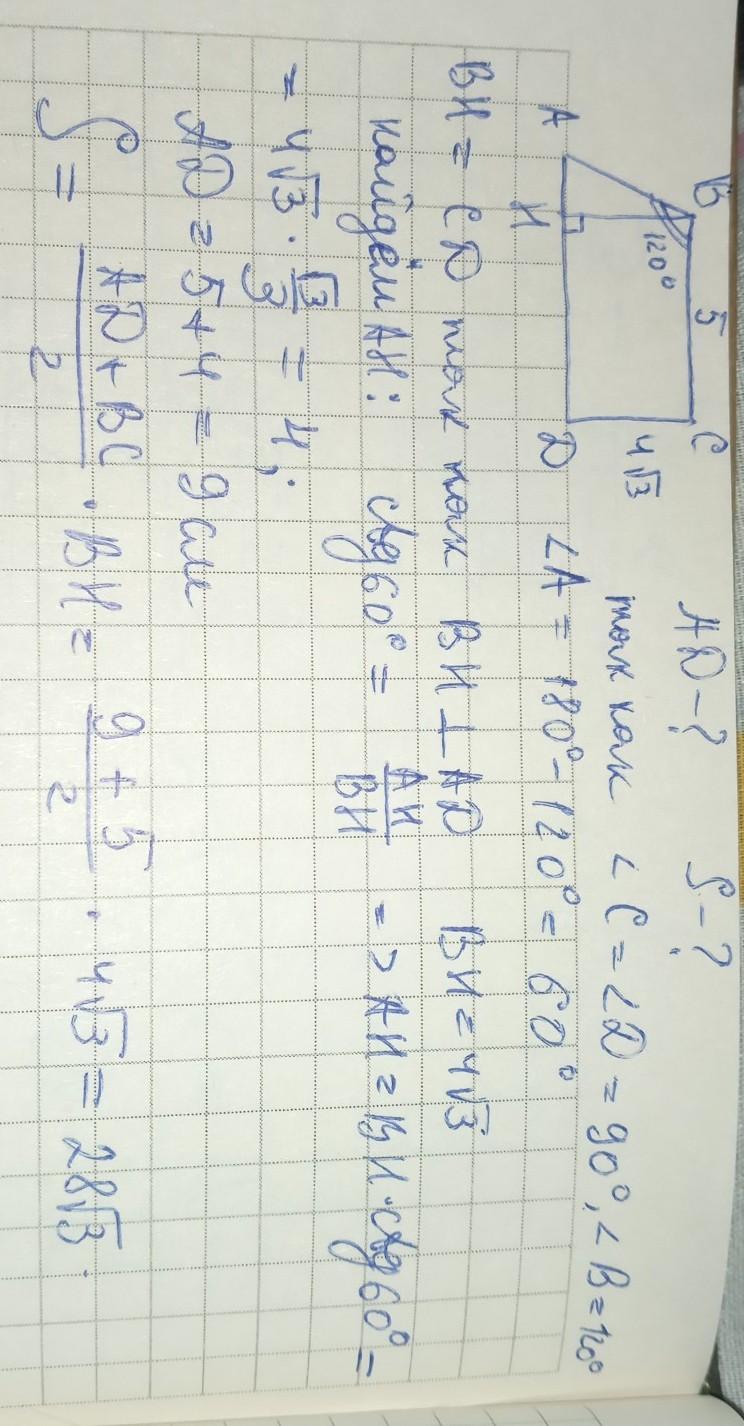 AD-? S-?
B 5 C
120°
4√3
A H D
так как ∠C = ∠D = 90°, ∠B = 120°
∠A = 180° - 120° = 60°
BH = CD так как BH ⊥ AD BH = 4√3
найдём AH: ctg 60° = AH/BH => AH = BH · ctg 60° =
= 4√3 · √3/3 = 4;
AD = 5 + 4 = 9 см
S = AD + BC/2 · BH = 9 + 5/2 · 4√3 = 28√3.